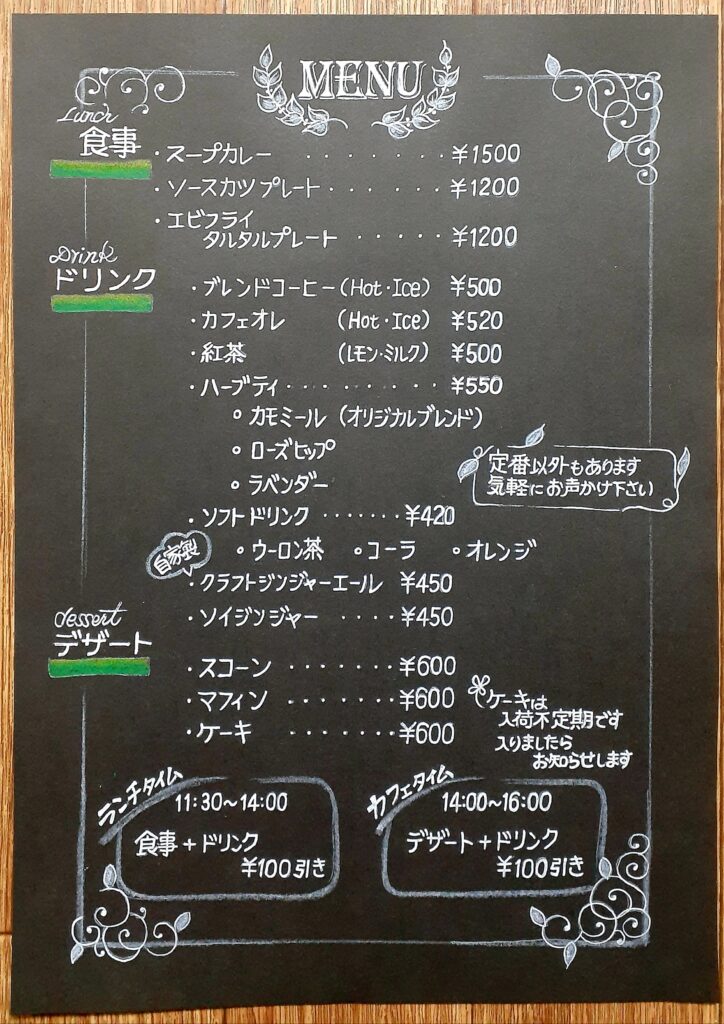 MENU
Lunch
食事
・スープカレー ・・・・・・・¥1500
・ソースカツプレート・・・・・¥1200
・エビフライ
タルタルプレート・・・・・¥1200
Drink
ドリンク
・ブレンドコーヒー(Hot・Ice) ¥500
・カフェオレ (Hot・Ice) ¥520
・紅茶 (レモン・ミルク) ¥500
・ハーブティ・・・・・・・・・¥550
○カモミール(オリジナルブレンド)
○ローズヒップ
○ラベンダー
定番以外もあります
気軽にお声かけ下さい
・ソフトドリンク ・・・・・・・¥420
○ウーロン茶 ○コーラ ○オレンジ
自家製
・クラフトジンジャーエール ¥450
・ソイジンジャー ・・・・¥450
dessert
デザート
・スコーン ・・・・・・・¥600
・マフィン ・・・・・・・¥600
・ケーキ ・・・・・・・¥600
ケーキは
入荷不定期です
入りましたら
お知らせします
ランチタイム
11:30~14:00
食事+ドリンク
¥100引き
カフェタイム
14:00~16:00
デザート+ドリンク
¥100引き